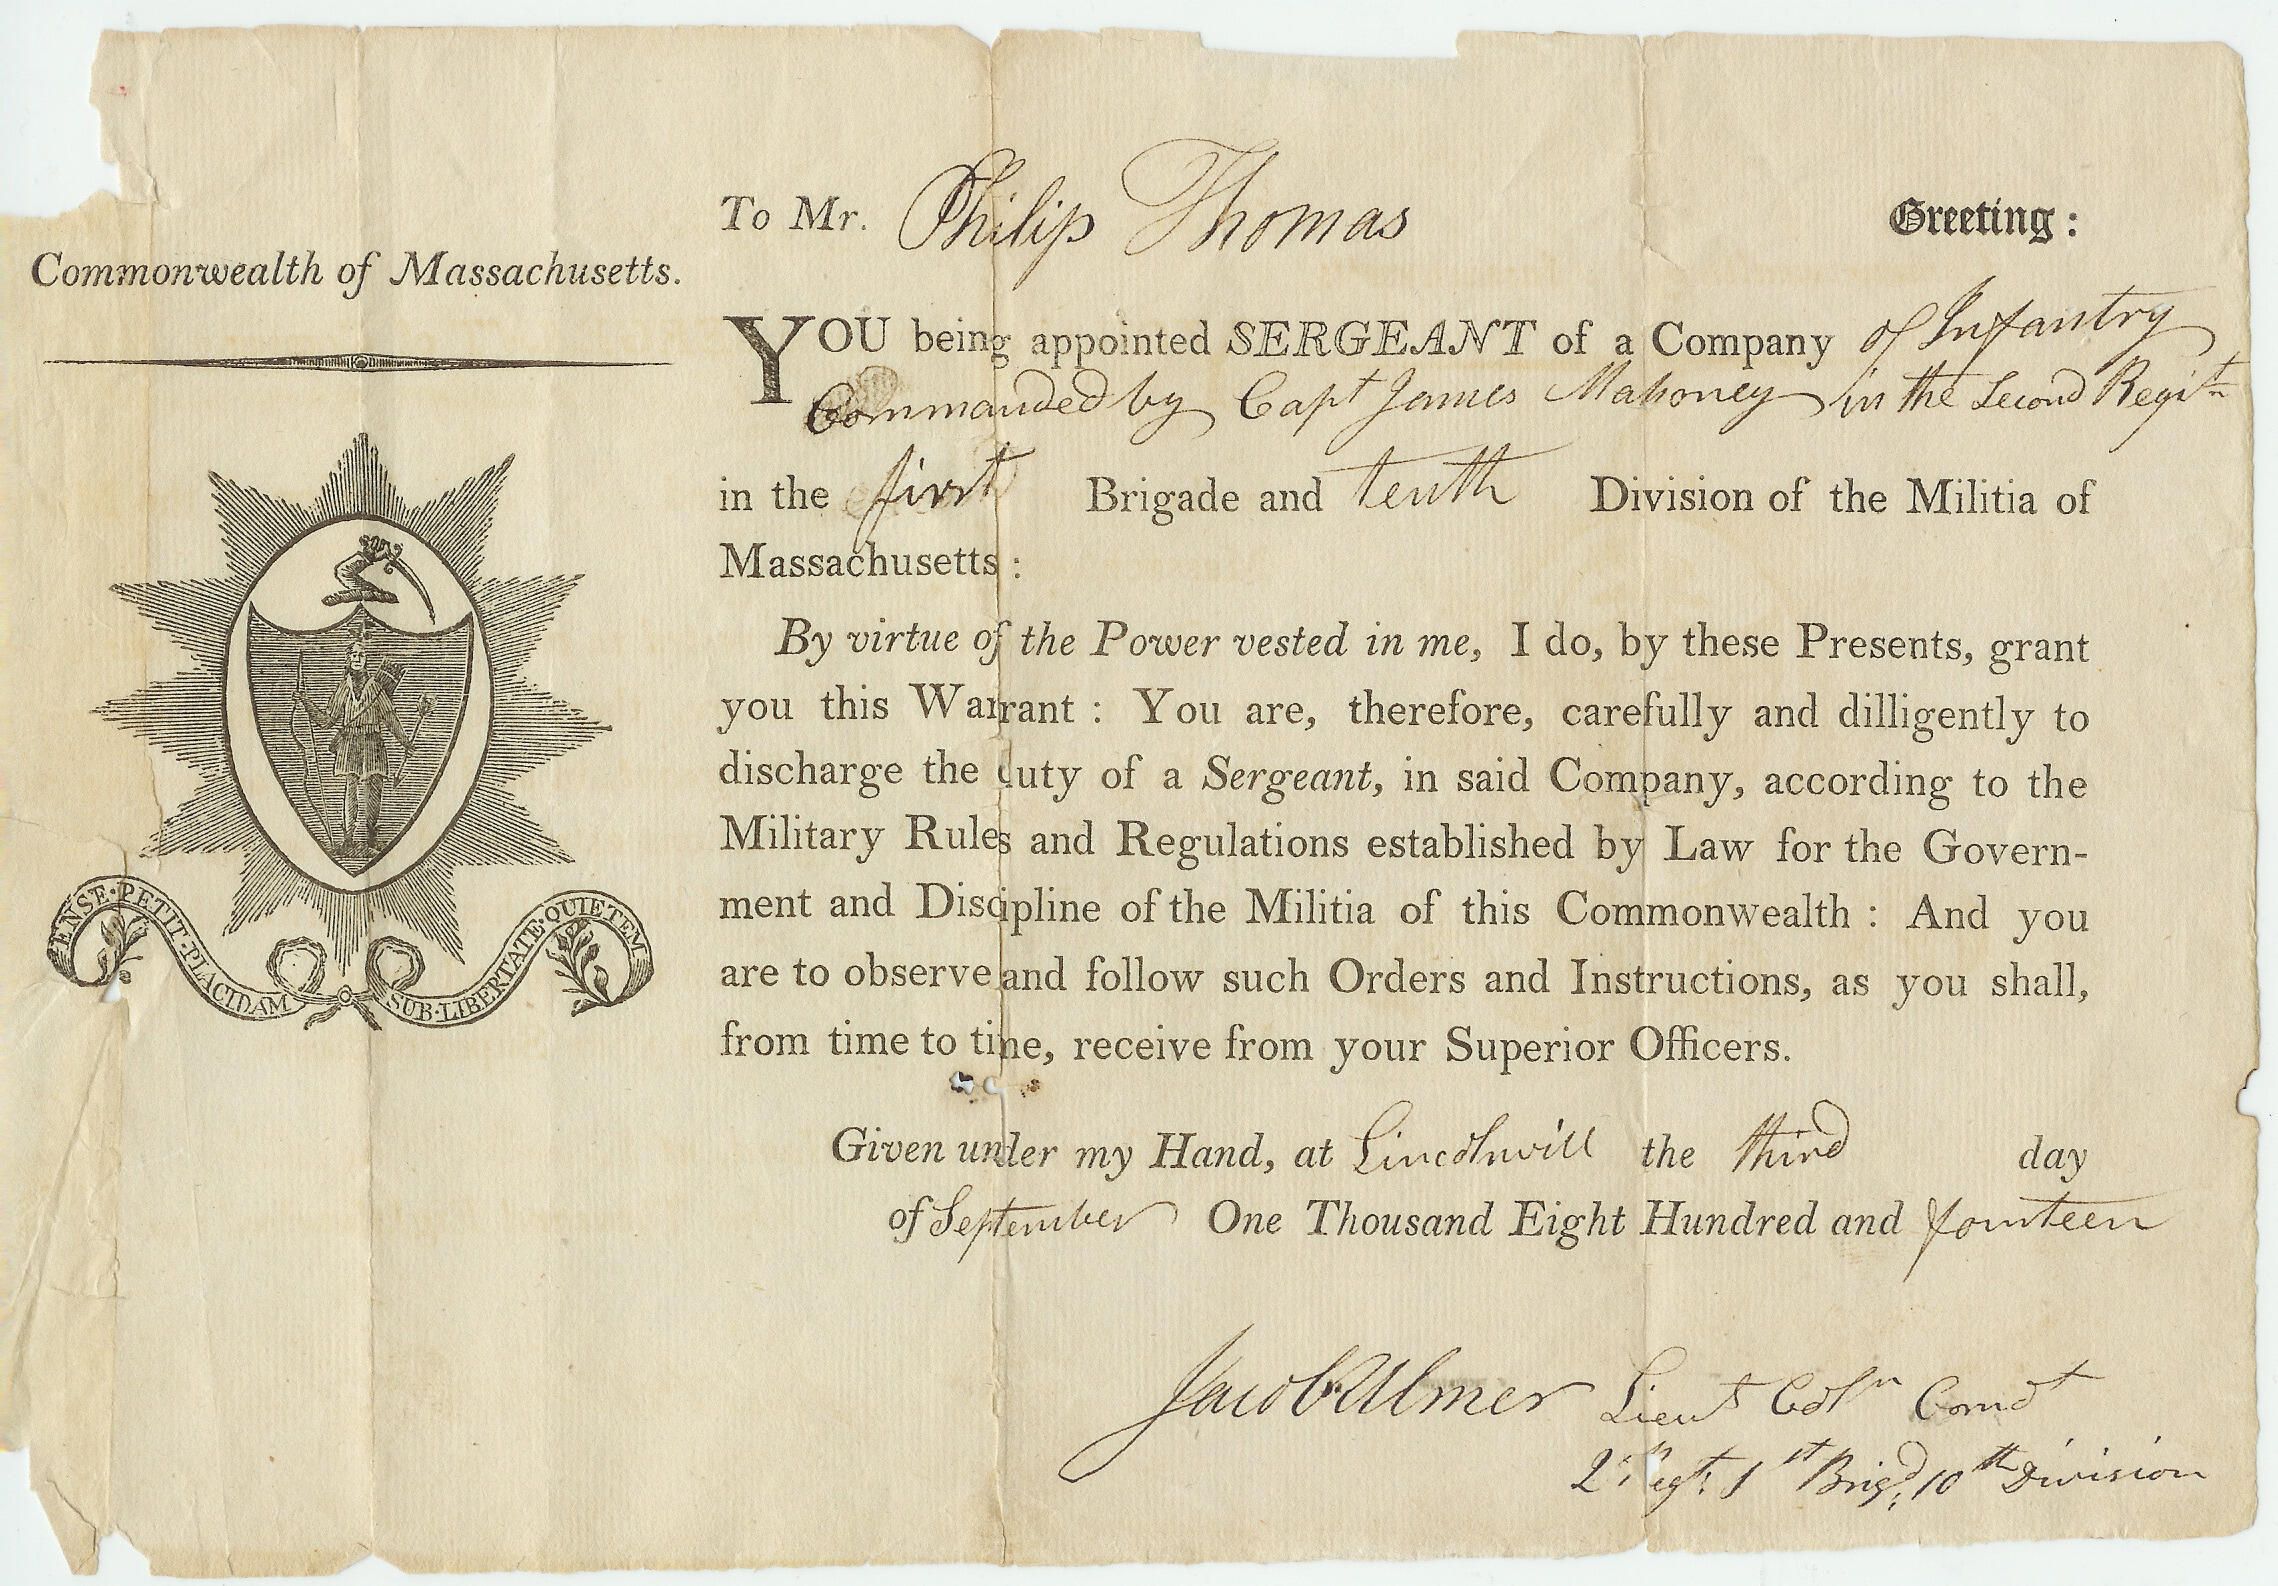 Commonwealth of Massachusetts.
ENSE·PETIT·PLACIDAM SUB·LIBERTATE·QUIETEM
To Mr. Philip Thomas Greeting:
YOU being appointed SERGEANT of a Company of Infantry
Commanded by Capt James Mahoney in the Second Regit
in the first Brigade and tenth Division of the Militia of
Massachusetts:
By virtue of the Power vested in me, I do, by these Presents, grant
you this Warrant: You are, therefore, carefully and dilligently to
discharge the duty of a Sergeant, in said Company, according to the
Military Rules and Regulations established by Law for the Govern-
ment and Discipline of the Militia of this Commonwealth: And you
are to observe and follow such Orders and Instructions, as you shall,
from time to time, receive from your Superior Officers.
Given under my Hand, at Lincolnvill the third day
of September One Thousand Eight Hundred and fourteen
Jacob Ulmer Lieut Coln Comdt
1st Brigd, 10th Division